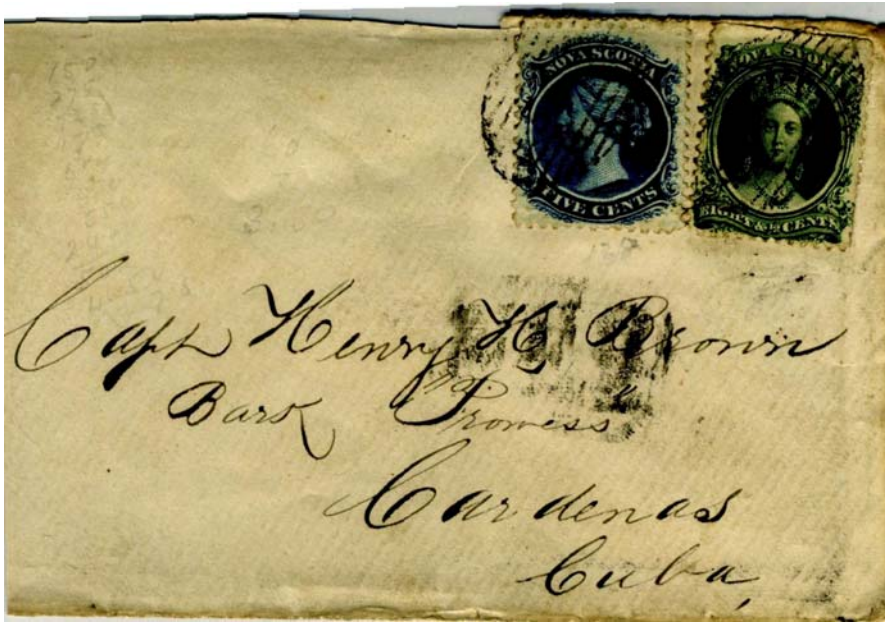 NOVA SCOTIA
FIVE CENTS
NOVA SCOTIA
EIGHT & ½ CENTS
Capt Henry H, Brown
Bark "Prowess"
Cardenas
Cuba,